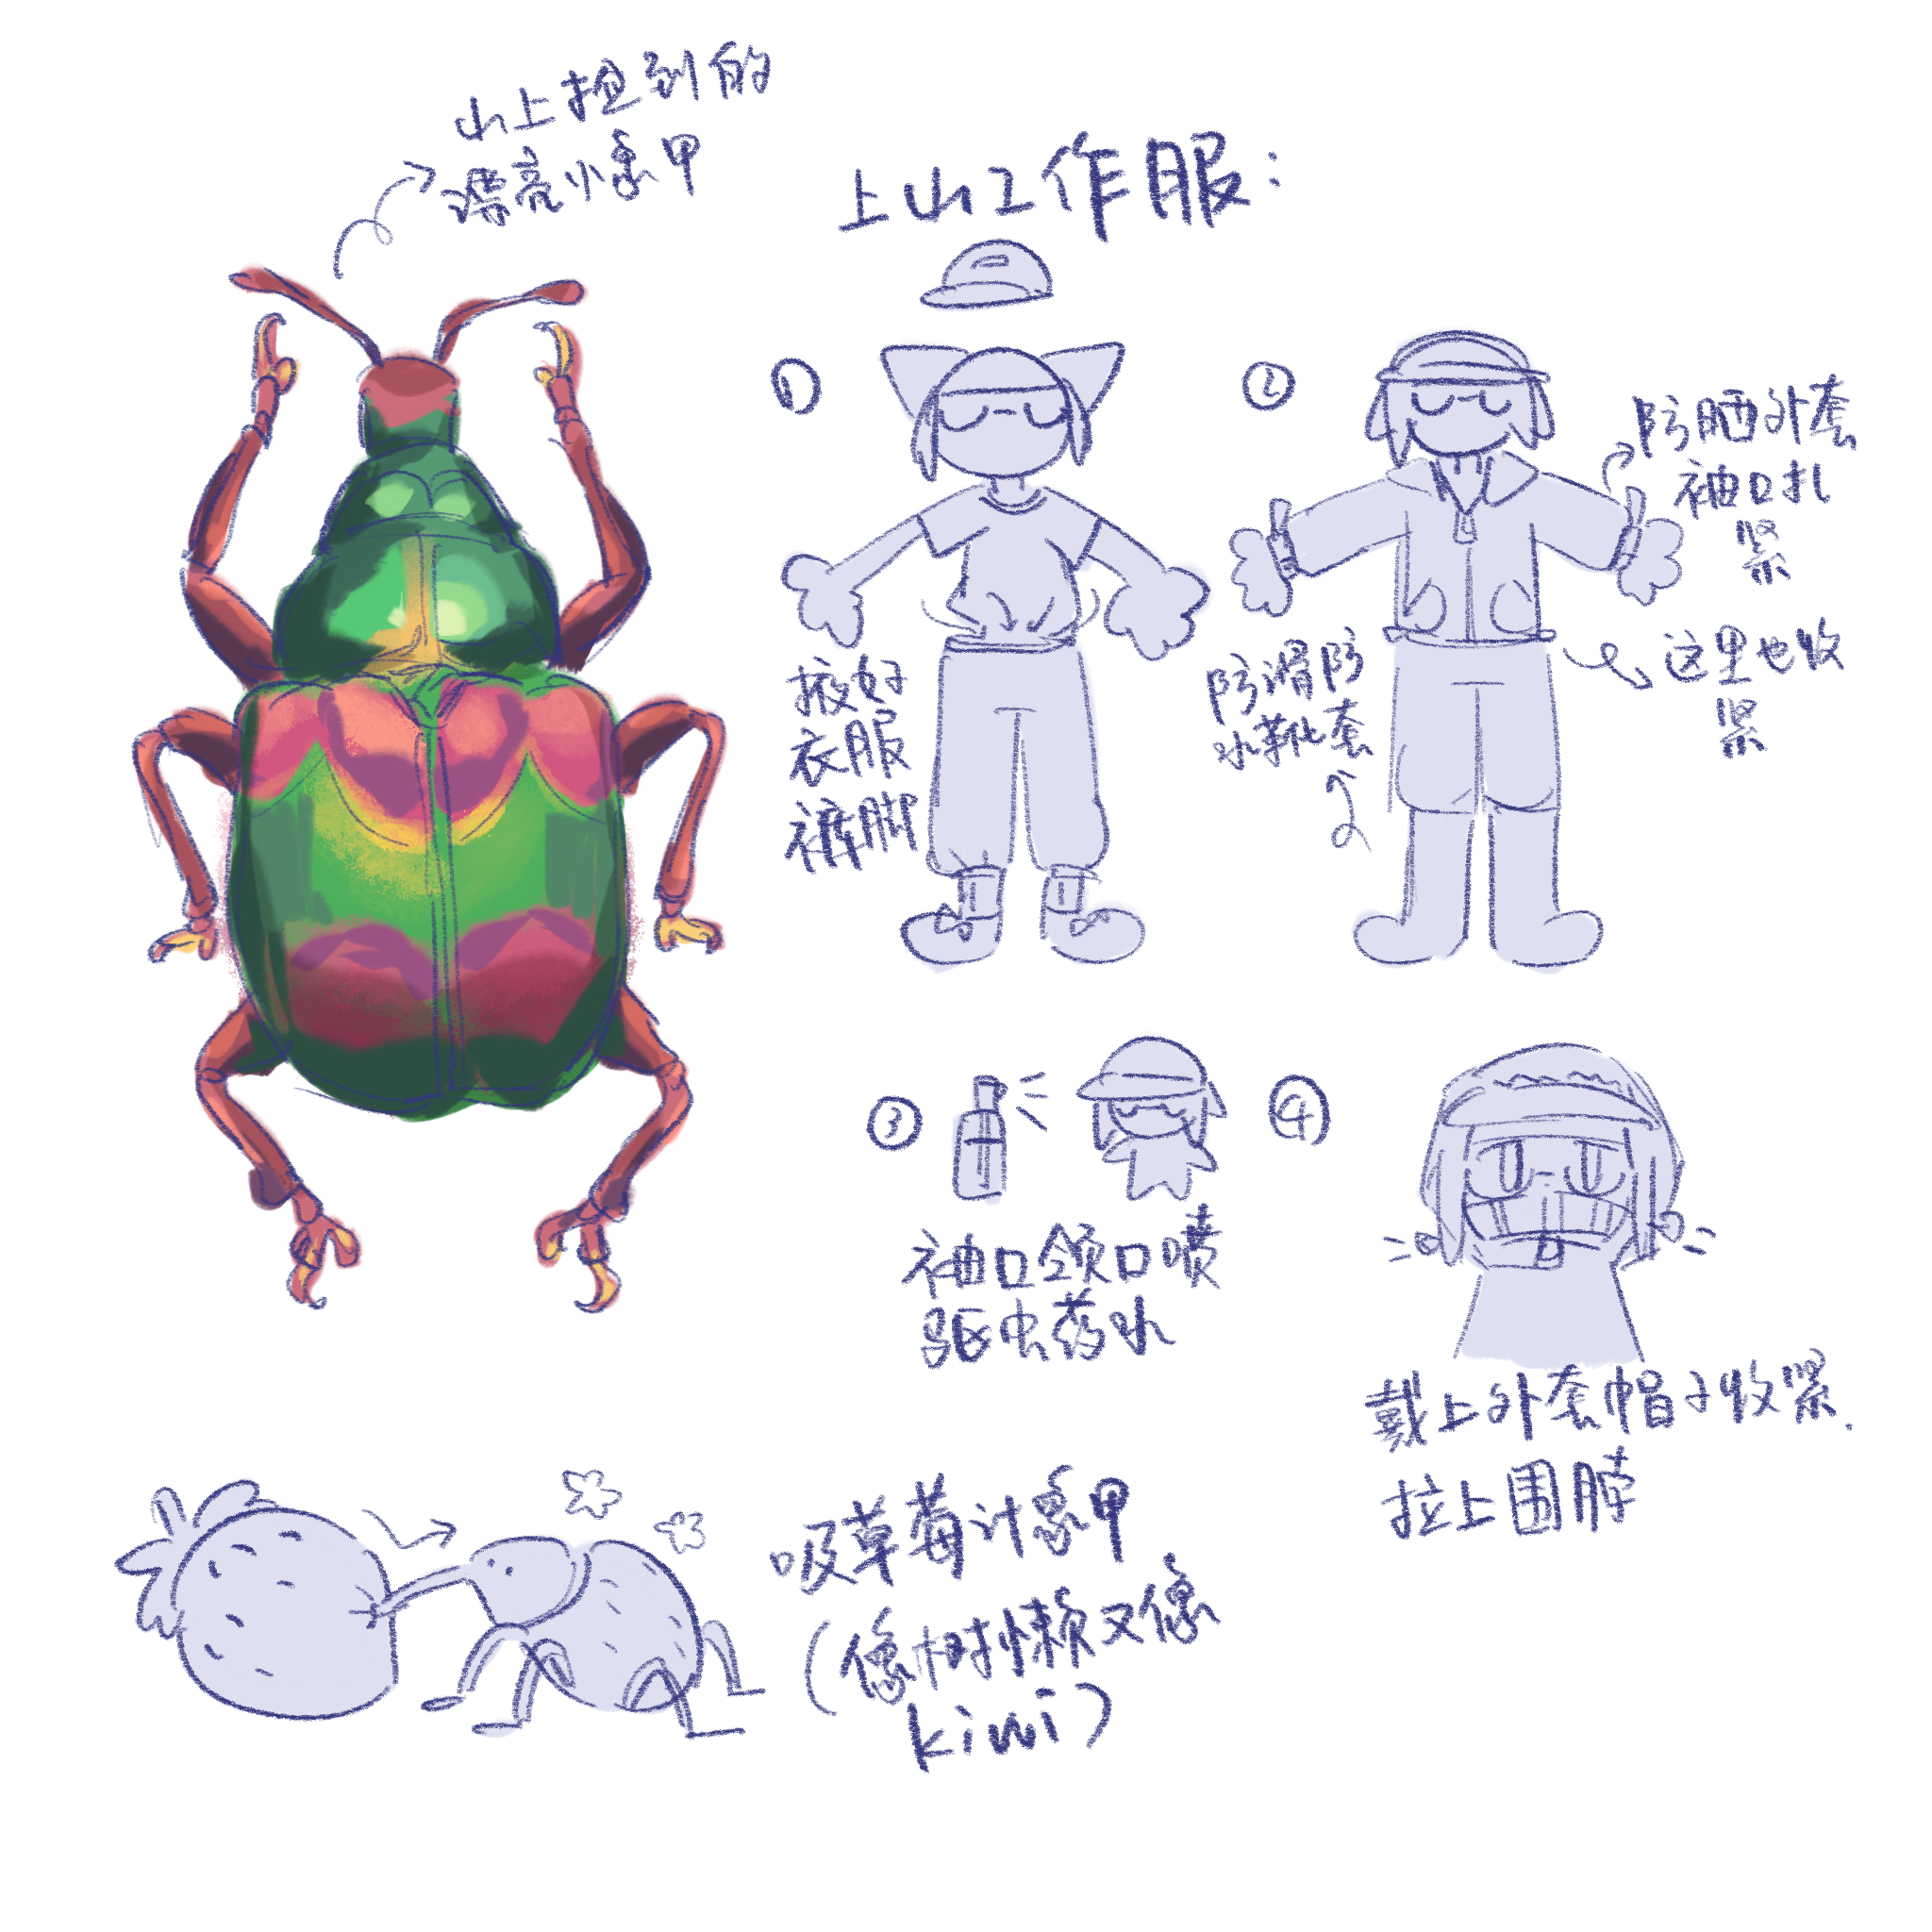 山上抱到的
漂亮小象甲
上山工作服:
①
掖好
衣服
裤脚
②
防晒外套
袖口扎
紧
这里也收
紧
防滑防
水靴套
③
袖口领口喷
驱虫药水
④
戴上外套帽子收紧.
拉上围脖
吸草莓汁象甲
(像树懒又像
kiwi)